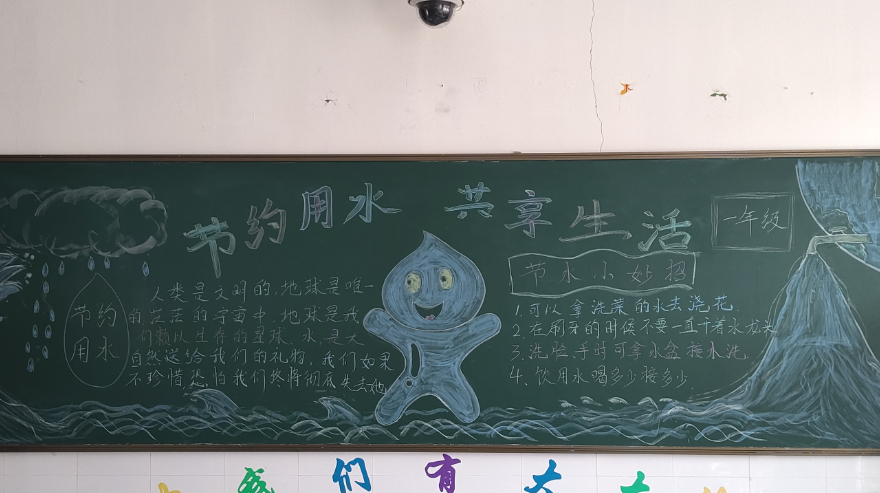 节约用水 共享生活
一年级
节约
用水
人类是文明的,地球是唯一
的,茫茫的宇宙中,地球是我
们赖以生存的星球。水,是大
自然送给我们的礼物,我们如果
不珍惜,恐怕我们终将彻底失去她
节水小妙招
1.可以拿洗菜的水去浇花.
2.在刷牙的时候不要一直开着水龙头
3.洗脸、手时可拿水盆接水洗.
4、饮用水喝多少接多少.
我们有大